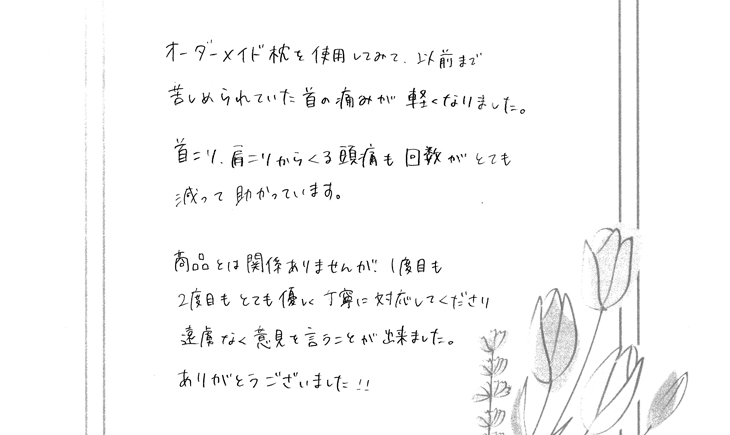 オーダーメイド枕を使用してみて、以前まで
苦しめられていた首の痛みが軽くなりました。
首こり、肩こりからくる頭痛も回数がとても
減って助かっています。
商品とは関係ありませんが、1度目も
2度目もとても優しく丁寧に対応してくださり
遠慮なく意見を言うことが出来ました。
ありがとうございました!!